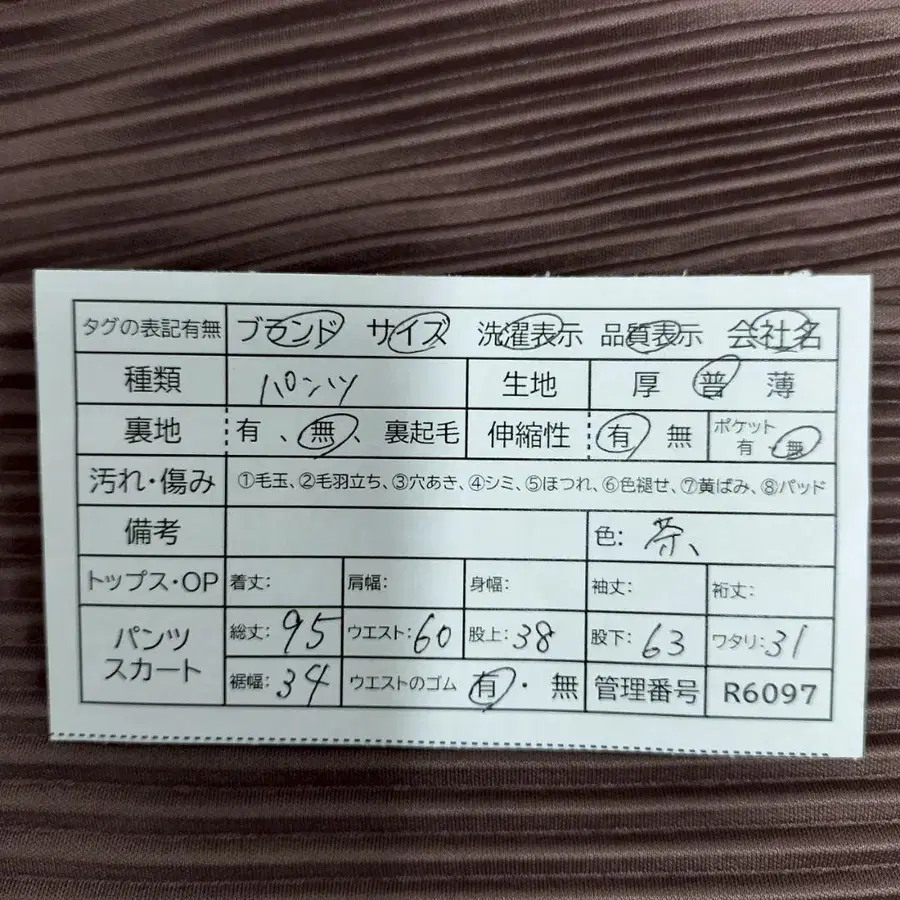 タグの表記有無 ブランド サイズ 洗濯表示 品質表示 会社名
種類 パンツ 生地 厚 普 薄
裏地 有 、無、裏起毛 伸縮性 有 無 ポケット 有・無
汚れ・傷み ①毛玉、②毛羽立ち、③穴あき、④シミ、⑤ほつれ、⑥色褪せ、⑦黄ばみ、⑧パッド
備考 色: 茶、
トップス・OP 着丈: 肩幅: 身幅: 袖丈: 裄丈:
パンツ スカート 総丈: 95 ウエスト: 60 股上: 38 股下: 63 ワタリ: 31
裾幅: 34 ウエストのゴム 有・無 管理番号 R6097